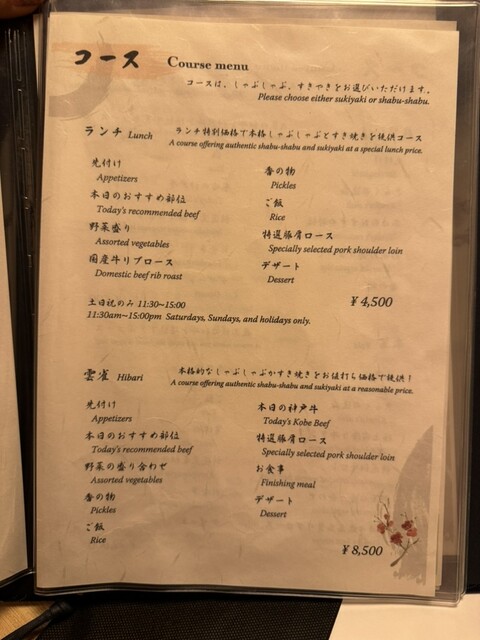 コース Course menu
コースは、しゃぶしゃぶ、すきやきをお選びいただけます。
Please choose either sukiyaki or shabu-shabu.
ランチ Lunch
ランチ特別価格で本格しゃぶしゃぶとすき焼きを提供コース
A course offering authentic shabu-shabu and sukiyaki at a special lunch price.
先付け
Appetizers
本日のおすすめ部位
Today's recommended beef
野菜盛り
Assorted vegetables
国産牛リブロース
Domestic beef rib roast
香の物
Pickles
ご飯
Rice
特選豚肩ロース
Specially selected pork shoulder loin
デザート
Dessert
¥4,500
土日祝のみ 11:30~15:00
11:30am~15:00pm Saturdays, Sundays, and holidays only.
雲雀 Hibari
本格的なしゃぶしゃぶかすき焼きをお値打ち価格で提供！
A course offering authentic shabu-shabu and sukiyaki at a reasonable price.
先付け
Appetizers
本日のおすすめ部位
Today's recommended beef
野菜の盛り合わせ
Assorted vegetables
香の物
Pickles
ご飯
Rice
本日の神戸牛
Today's Kobe Beef
特選豚肩ロース
Specially selected pork shoulder loin
お食事
Finishing meal
デザート
Dessert
¥8,500